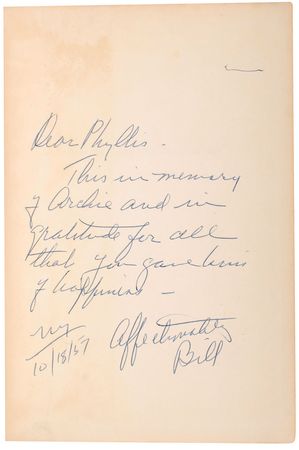 Dear Phyllis -
This in memory
of Archie and in
gratitude for all
that you gave him
of happiness -
NY
10/18/57
Affectionately
Bill